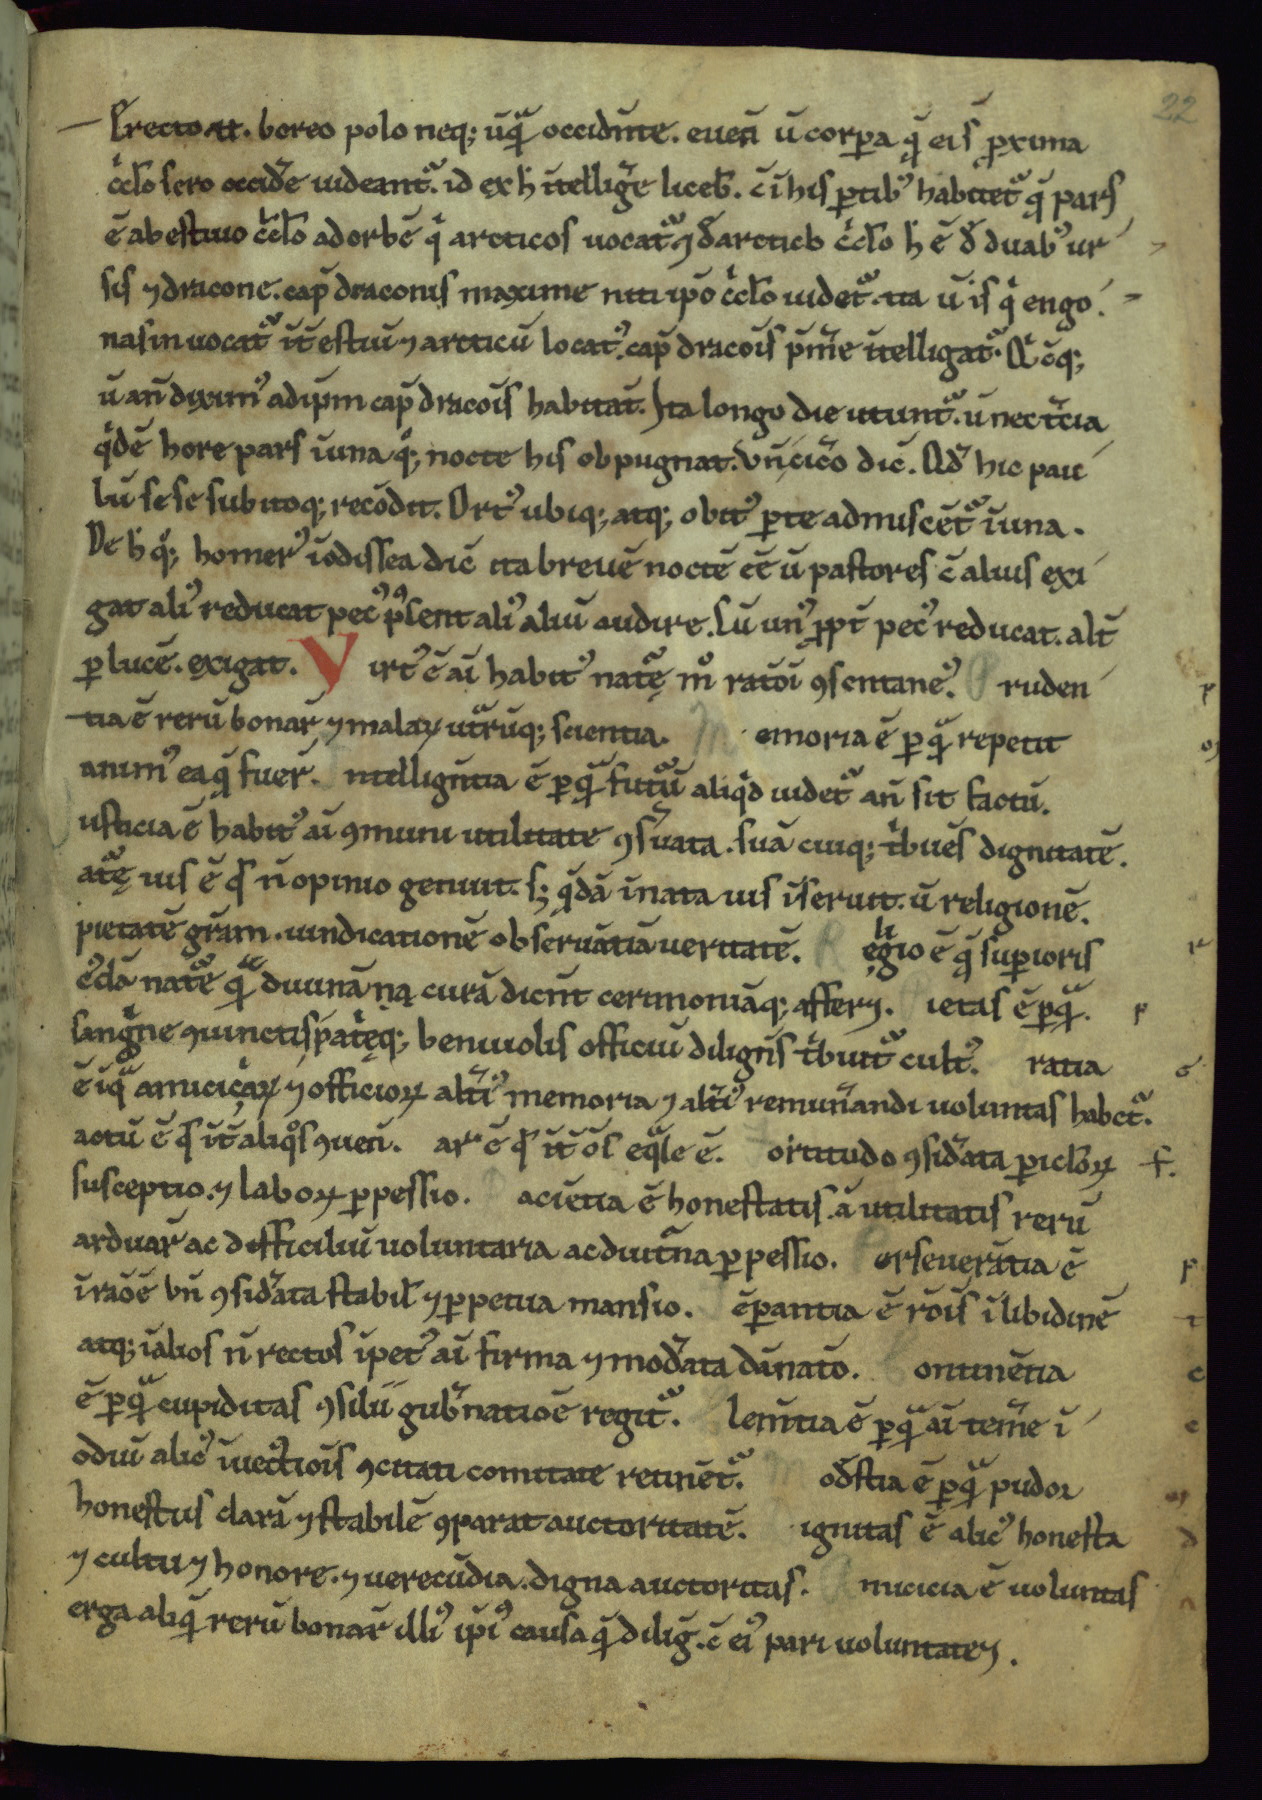 22
Erecto .n. boreo polo neq; ūqͣ occidūnt. eueń ū corꝑa q̄ eis ꝓxima
cͥclo sero occidͤe uideantͬ. id ex h̄ ītelligͤe liceb̄. c̄ ī his ꝑtibꝰ habitetͬ q̄ pars
ē ab estiuo cͥclo ad orbē qͥ arcticos uocatͬ ⁊ đ arctico cͥclo h̄ ē đ duabꝰ ur
sis ⁊ dracone. cap̄ draconis maxime niti ip̄o cͥclo uidetͬ. ita ū is qͥ engo
nasin uocatͬ īt̄ estiū ⁊ arcticū locatꝰ. cap̄ dracōis p̄mͤe ītelligatͬ. Qͥc̄q;
ū an̄ diximꝰ ad ip̄m cap̄ dracōis habitat̄. Ita longo die utuntͬ. ū nec t̄cia
qͥdē hore pars ī una qͦq; nocte his obpugnat. Vn̄ cic̄o dic̄. Qđ hic pau
lū sese subitoq; recōdit. Ortꝰ ubiq; atq; obitꝰ ꝑte admiscētͬ ī una.
De h̄ qͦq; homerꝰ ī odissea dic̄ ita breuē noctē eē ū pastores c̄ alius exi
gat aliꝰ reducat pecꝰ pͦsent aliꝰ aliū audire. Cū unꝰ ꝓpt̄ pecꝰ reducat. alt̄
ꝑ lucē. exigat. Virtꝰ ē ai̅ habitꝰ natͬę mͦ rat̄oi ꝯsentaneꝰ. Pruden
tia ē rerū bonar̄ ⁊ malaꝝ utͬrūq; scientia. Memoria ē ꝑ qͣ repetit
animꝰ ea q̄ fuer̄. ntelligēntia ē ꝑ qͣ futͬū aliqͥd uidetͬ an̄ sit factū.
usticia ē habitꝰ ai̅ ꝯmuni utilitate ꝯs̄uata. suā cuiq; tͥbuēs dignitatē.
atͬę uis ē q̄ n̄ opinio genuit. s; qͣdā īnata uis īseruit. ū religionē.
pietatē grām. uindicationē obseruātiā ueritatē. Religio ē q̄ suꝑioris
cͥdā natͬę qͣ diuinā ną curā dicūt cerimoniāq; affer⁊. ietas ē ꝑ qͣ.
sangͥne ꝯiunctis patͥęq; beniuolis officiū diligēs tͥbuitͬ cultꝰ. ratia
ē ī qͣ amiciciaꝝ ⁊ officioꝝ alt̄iꝰ memoria ⁊ alt̄iꝰ remun̄andi uoluntas habetͬ.
actū ē q̄ īt̄ aliqͦs ꝯueń. ar ē q̄ īt̄ ōs eqͣle ē. Fortitudo ꝯsid̄ata ꝑicloꝝ
susceptio. ⁊ laboꝝ ꝑpessio. aciētia ē honestatis. ā utilitatis rerū
arduar̄ ac difficiliū uoluntaria ac diut̄na ꝑpessio. Perseuerātia ē
ī rao͞e bn̄ ꝯsid̄ata stabil̄ ⁊ ꝑpetua mansio. ēꝑantia ē rōis ī libidinē
atq; ī alios n̄ rectos īpetꝰ ai̅ firma ⁊ mod̄ata dn̄atō. Continētia
ē ꝑ qͣ cupiditas ꝯsilii gub̄natiōe regitͬ. lemētia ē ꝑ qͣ ai̅ tem̄e ī
odiū alicꝰ īuectiōis ꝯcitati comitate retinētͬ. Mođstia ē ꝑ qͣ pudor
honestus clarā ⁊ stabilē ꝯparat auctoritatē. ignitas ē alicꝰ honesta
⁊ cultu ⁊ honore. ⁊ uerecūdia. digna auctoritas. Amicicia ē uoluntas
erga aliq̄ rerū bonar̄ illiꝰ ip̄iꝰ causa q̄ diliḡ. c̄ eiꝰ pari uoluntate⁊.